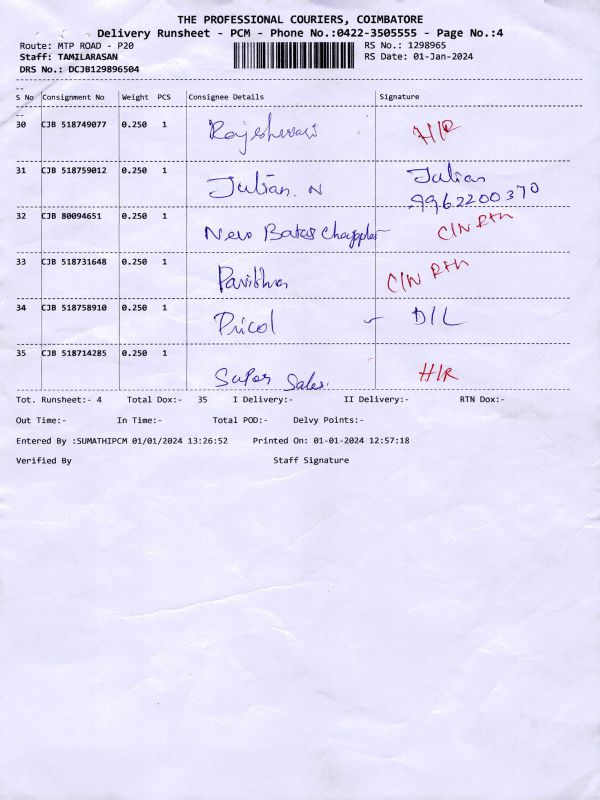 THE PROFESSIONAL COURIERS, COIMBATORE
Delivery Runsheet - PCM - Phone No.:0422-3505555 - Page No.:4
Route: MTP ROAD - P20 RS No.: 1298965
Staff: TAMILARASAN RS Date: 01-Jan-2024
DRS No.: DCJB129896504
S No Consignment No Weight PCS Consignee Details Signature
30 CJB 518749077 0.250 1 Rajeshwari H/R
31 CJB 518759012 0.250 1 Julian. N Julian
9962200370
32 CJB 80094651 0.250 1 New C/N Rtn
33 CJB 518731648 0.250 1 Pavithra C/N Rtn
34 CJB 518758910 0.250 1 Pricol - D/L
35 CJB 518714285 0.250 1 Super Sales. H/R
Tot. Runsheet:- 4 Total Dox:- 35 I Delivery:- II Delivery:- RTN Dox:-
Out Time:- In Time:- Total POD:- Delvy Points:-
Entered By :SUMATHIPCM 01/01/2024 13:26:52 Printed On: 01-01-2024 12:57:18
Verified By Staff Signature